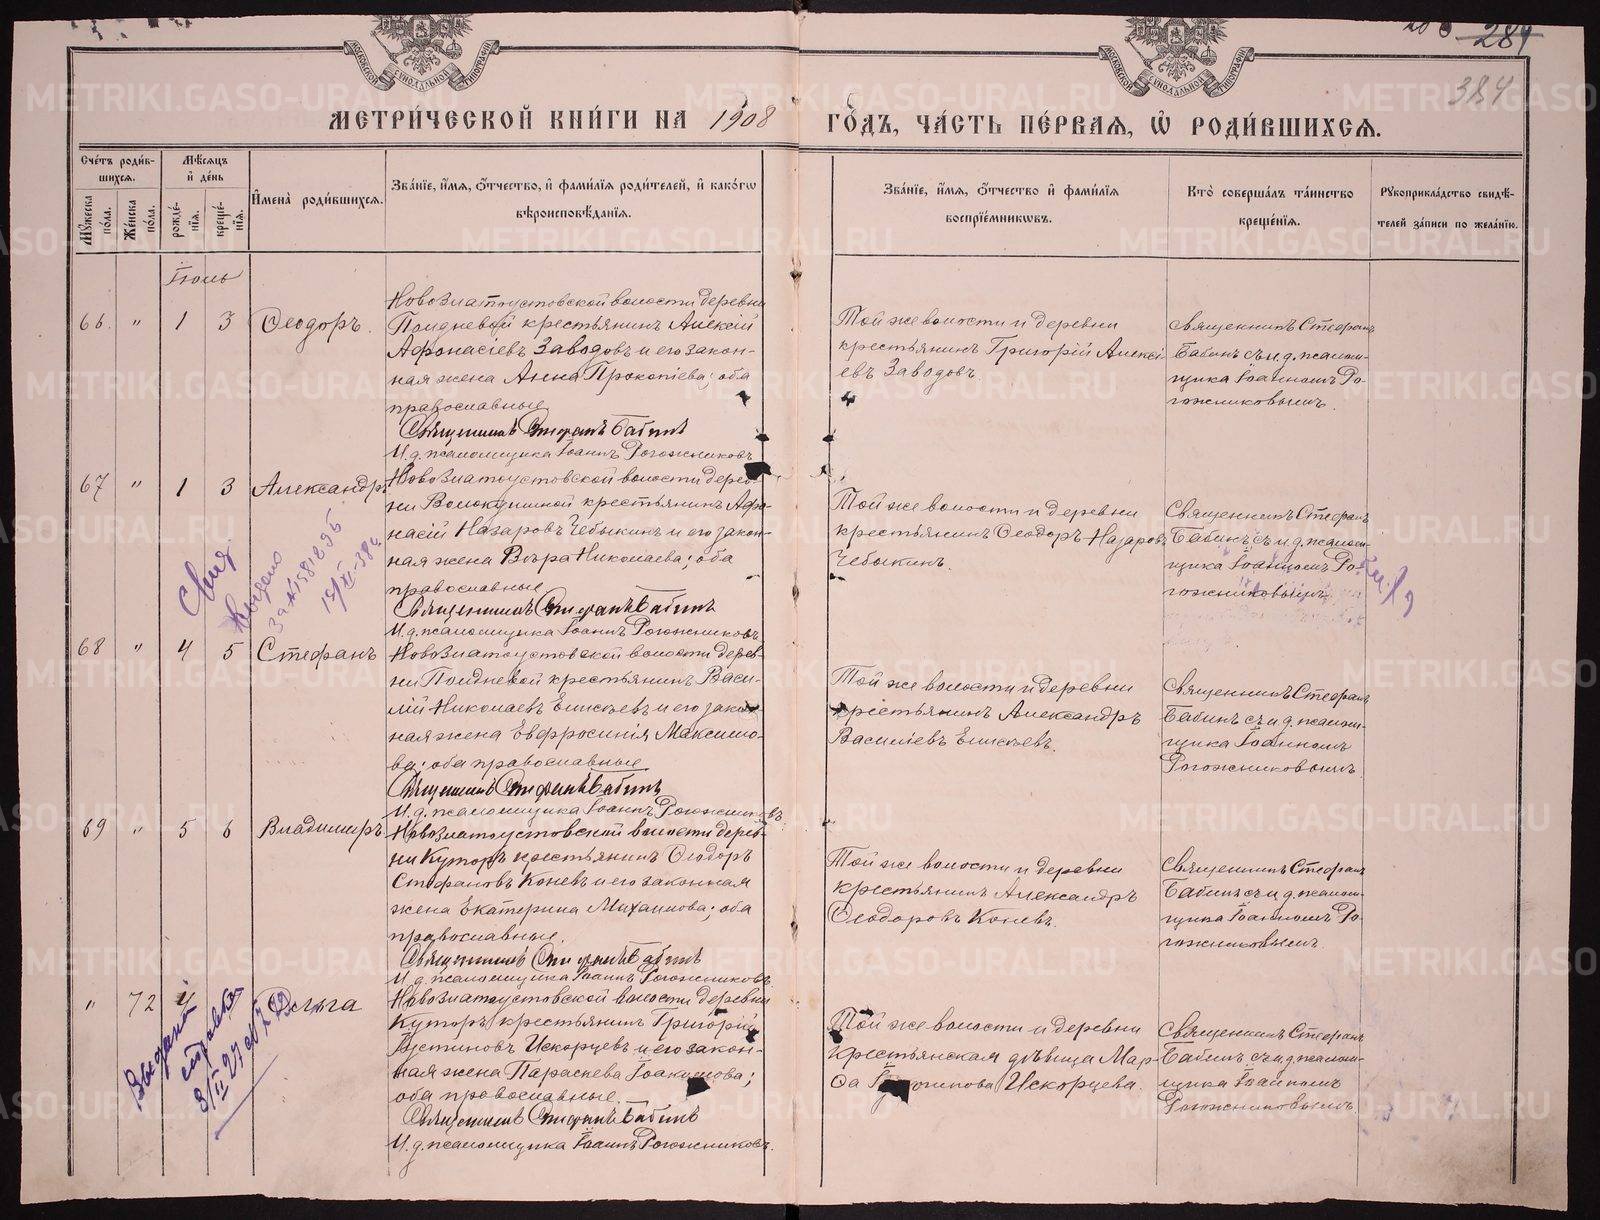 МЕТРИ́ЧЕСКОЙ КНИ́ГИ НА 1908 ГО́ДЪ, ЧА́СТЬ ПЕ́РВАѦ, Ѡ҆ РОДИ́ВШИХСѦ.
284
384
Сче́тъ роди́вшихсѧ.
Мѣ́сѧцъ и҆ де́нь
Мꙋ́жеска по́ла.
Же́нска по́ла.
рожде́нїѧ.
креще́нїѧ.
И҆мена̀ роди́вшихсѧ.
Зва́нїе, и҆́мѧ, ѻ҆́тчество, и҆ фами́лїѧ роди́телей, и҆ како́гѡ вѣроисповѣ́данїѧ.
Зва́нїе, и҆́мѧ, ѻ҆́тчество и҆ фами́лїѧ воспрїе́мникѡвъ.
Кто̀ соверша́лъ та́инство креще́нїѧ.
Рꙋкоприкла́дство свидѣ́телей за́писи по жела́нїю.
Іюль
66. " 1 3 Ѳеодоръ.
Новозлатоустовской волости деревни
Полдневой крестьянинъ Алексій
Афонасіевъ Заводовъ и его закон-
ная жена Анна Прокопіева; оба
православные
Священникъ Стефанъ Бабинъ
И. д. псаломщика Іоаннъ Рогожниковъ
Той же волости и деревни
крестьянинъ Григорій Алексі-
евъ Заводовъ
Священникъ Стефанъ
Бабинъ съ и. д. псалом-
щика Іоанномъ Ро-
гожниковымъ.
67 " 1 3 Александръ
Новозлатоустовской волости дерев-
ни Волокушиной крестьянинъ Афо-
насій Назаровъ Чебыкинъ и его закон-
ная жена Вѣра Николаева; оба
православные
Священникъ Стефанъ Бабинъ
И. д. псаломщика Іоаннъ Рогожниковъ
Той же волости и деревни
крестьянинъ Ѳеодоръ Назаровъ
Чебыкинъ.
Священникъ Стефанъ
Бабинъ съ и. д. псалом-
щика Іоанномъ Ро-
гожниковымъ
Выдано
68 " 4 5 Стефанъ
Новозлатоустовской волости дерев-
ни Полдневой крестьянинъ Васи-
лій Николаевъ Елисѣевъ и его закон-
ная жена Евфросинія Максимо-
ва; оба православные
Священникъ Стефанъ Бабинъ
И. д. псаломщика Іоаннъ Рогожниковъ
Той же волости и деревни
крестьянинъ Александръ
Василіевъ Елисѣевъ.
Священникъ Стефанъ
Бабинъ съ и. д. псалом-
щика Іоанномъ
Рогожниковымъ
69 " 5 6 Владимиръ
Новозлатоустовской волости дерев-
ни Куторъ крестьянинъ Ѳеодоръ
Стефановъ Коневъ и его законная
жена Екатерина Михаилова; оба
православные.
Священникъ Стефанъ Бабинъ
И. д. псаломщика Іоаннъ Рогожниковъ
Той же волости и деревни
крестьянинъ Александръ
Ѳеодоровъ Коневъ.
Священникъ Стефанъ
Бабинъ съ и. д. псалом-
щика Іоанномъ Ро-
гожниковымъ
" 72 4 Ольга
Новозлатоустовской волости деревни
Куторъ крестьянинъ Григорій
Іустиновъ Искорцевъ и его закон-
ная жена Параскева Іоакимова;
оба православные.
Священникъ Стефанъ Бабинъ
И. д. псаломщика Іоаннъ Рогожниковъ.
Той же волости и деревни
крестьянская дѣвица Мар-
ѳа Искорцева.
Священникъ Стефанъ
Бабинъ съ и. д. псалом-
щика Іоанномъ
Рогожниковымъ
Выдана
справка
METRIKI.GASO-URAL.RU